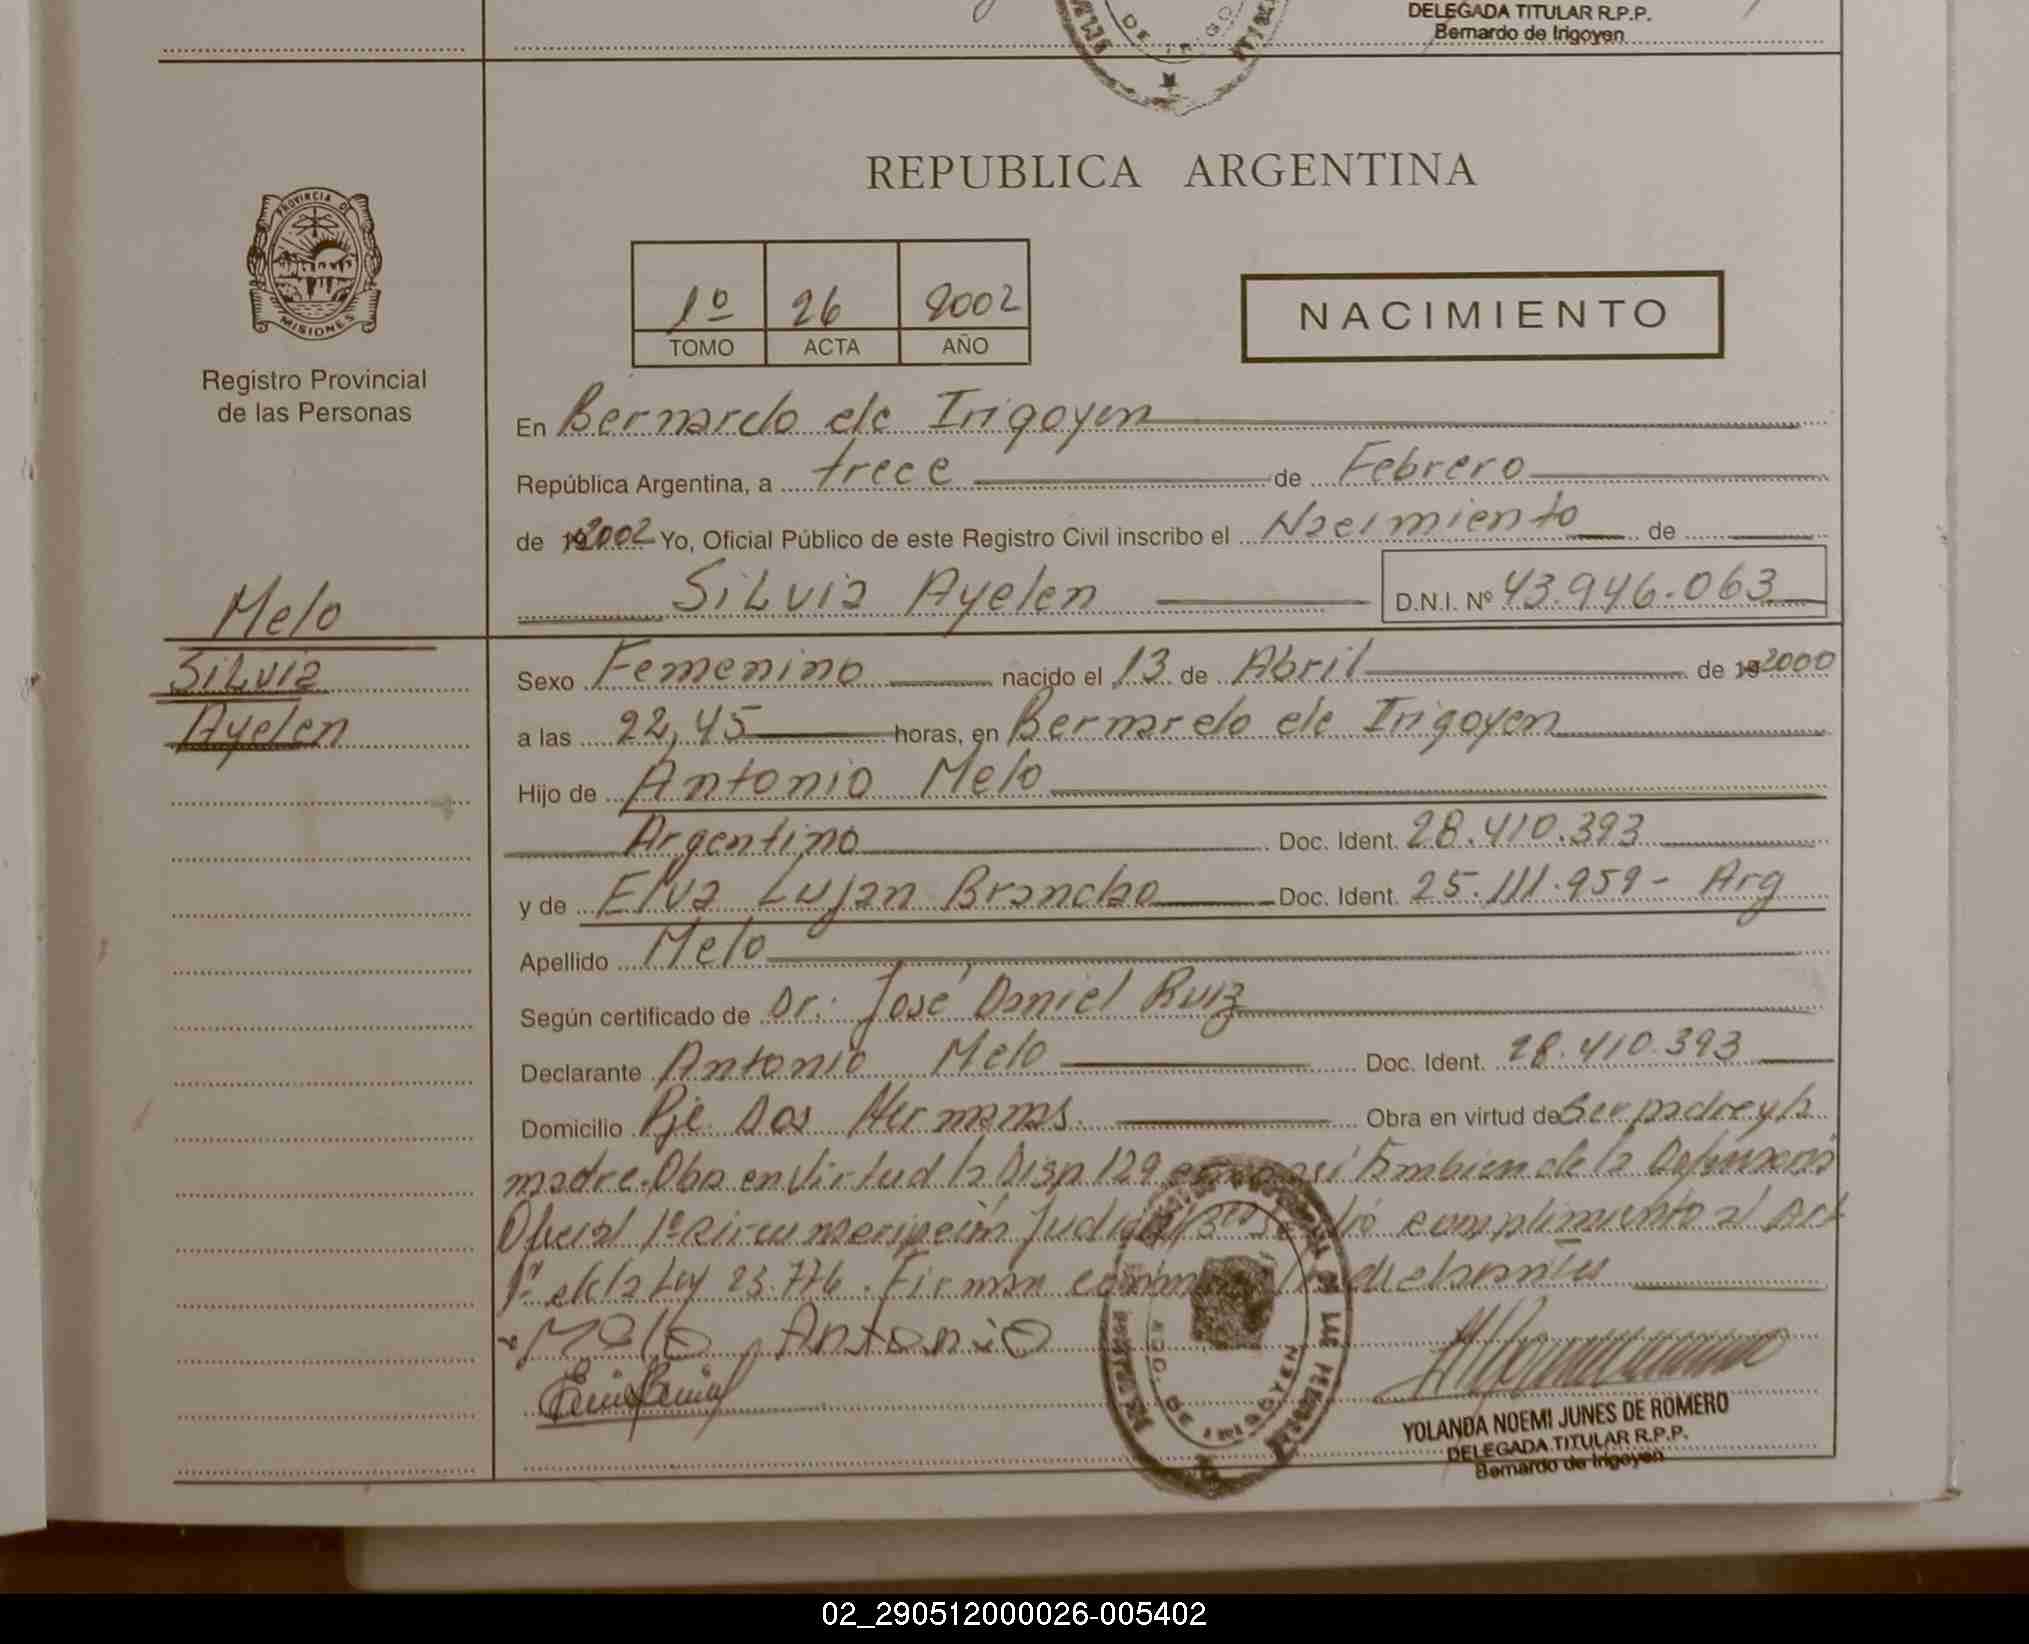 DELEGADA TITULAR R.P.P.
Bernardo de Irigoyen
REPUBLICA ARGENTINA
PROVINCIA DE
MISIONES
Registro Provincial
de las Personas
1º 26 2002
TOMO ACTA AÑO
NACIMIENTO
En Bernardo de Irigoyen
República Argentina, a trece de Febrero
de 2002 Yo, Oficial Público de este Registro Civil inscribo el Nacimiento de
Silvia Ayelen D.N.I. Nº 43.946.063
Melo
Silvia
Ayelen
Sexo Femenino nacido el 13 de Abril de 19 2000
a las 22,45 horas, en Bernardo de Irigoyen
Hijo de Antonio Melo
Argentino Doc. Ident. 28.410.393
y de Elva Lujan Doc. Ident. 25.111.959 - Arg
Apellido Melo
Según certificado de Dr. José Daniel Ruiz
Declarante Antonio Melo Doc. Ident. 28.410.393
Domicilio Pje Dos Hermanas. Obra en virtud de Ser padre y la
madre. Obra en Virtud la Disp 129 así Tambien de la Defensoria
Oficial 1º Judicial dió cumplimiento al Art
1º de la Ley 23.776. Firman
Melo Antonio
YOLANDA NOEMI JUNES DE ROMERO
DELEGADA TITULAR R.P.P.
Bernardo de Irigoyen
02_290512000026-005402